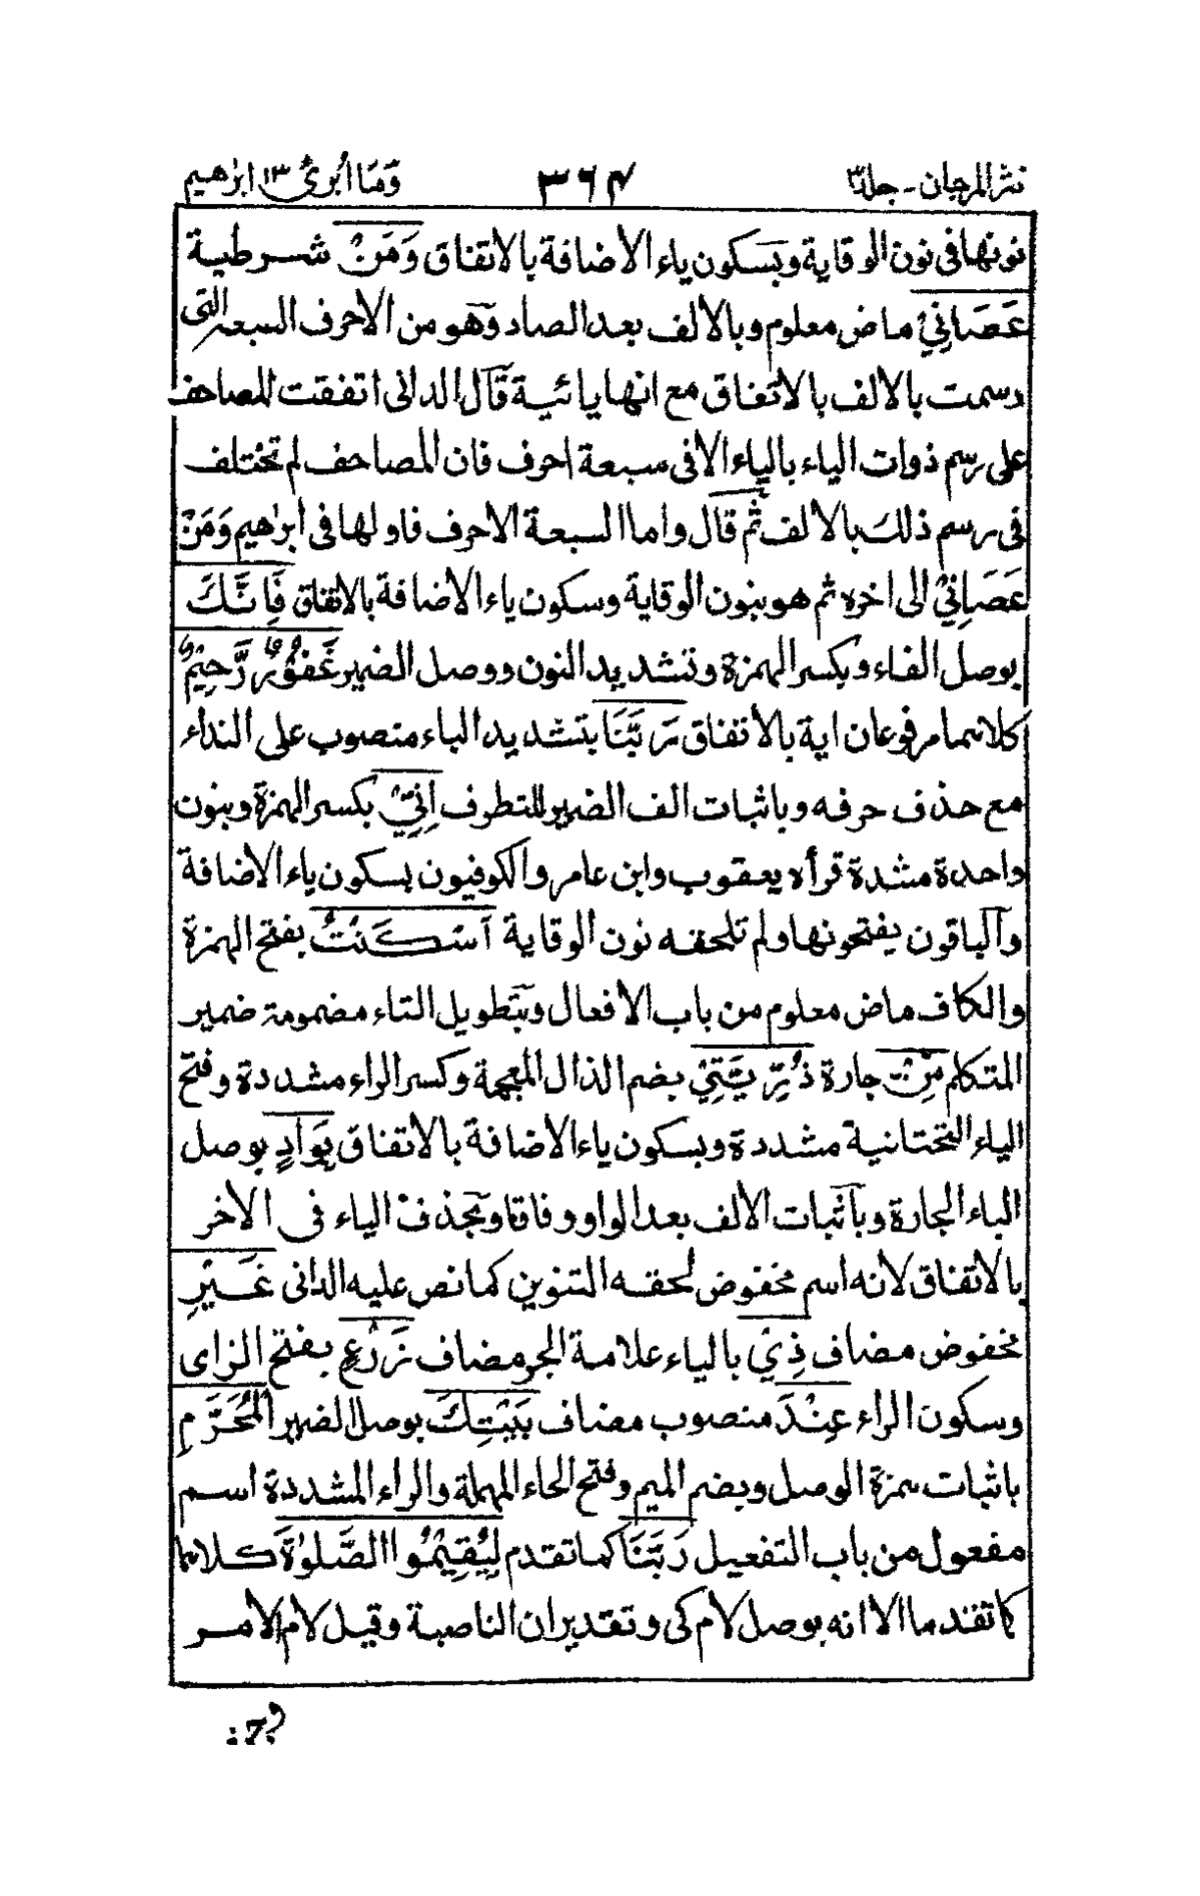 نثر المرجان - جلد٣ ٣٦٤ وَمَا اُبَرِّئُ ١٣ ابرٰهيم
نونها في نون الوقاية وبسكون ياء الاضافة بالاتفاق وَمَنْ شرطية
عَصَانِيْ ماض معلوم وبالالف بعد الصاد وهو من الاحرف السبعة التى
رسمت بالالف بالاتفاق مع انها يائية قال الدانى اتفقت المصاحف
على رسم ذوات الياء بالياء الا فى سبعة احرف فان المصاحف لم تختلف
فى رسم ذلك بالالف ثم قال واما السبعة الاحرف فاولها فى ابرٰهيم وَمَنْ
عَصَانِيْ الى اخره ثم هو بنون الوقاية وسكون ياء الاضافة بالاتفاق فَاِنَّكَ
بوصل الفاء وبكسر الهمزة وتشديد النون ووصل الضمير غَفُوْرٌ رَّحِيْمٌ
كلاهما مرفوعان اية بالاتفاق رَبَّنَا بتشديد الباء منصوب على النداء
مع حذف حرفه وباثبات الف الضمير للتطرف اِنِّيْ بكسر الهمزة وبنون
واحدة مشددة قرأه يعقوب وابن عامر والكوفيون بسكون ياء الاضافة
والباقون يفتحونها ولم تلحقه نون الوقاية اَسْكَنْتُ بفتح الهمزة
والكاف ماض معلوم من باب الافعال وبتطويل التاء مضمومة ضمير
المتكلم مِنْ جارة ذُرِّيَّتِيْ بضم الذال المعجمة وكسر الراء مشددة وفتح
الياء التحتانية مشددة وبسكون ياء الاضافة بالاتفاق بِوَادٍ بوصل
الباء الجارة وباثبات الالف بعد الواو وفاقا وبحذف الياء فى الاخر
بالاتفاق لانه اسم مخفوض لحقه التنوين كما نص عليه الدانى غَيْرِ
مخفوض مضاف ذِيْ بالياء علامة الجر مضاف زَرْعٍ بفتح الزاى
وسكون الراء عِنْدَ منصوب مضاف بَيْتِكَ بوصل الضمير الْمُحَرَّمِ
باثبات همزة الوصل وبضم الميم وفتح الحاء المهملة والراء المشددة اسم
مفعول من باب التفعيل رَبَّنَا كما تقدم لِيُقِيْمُوا الصَّلٰوةَ كلاهما
كما تقدما الا انه بوصل لام كى وتقدير ان الناصبة وقيل لام الامر